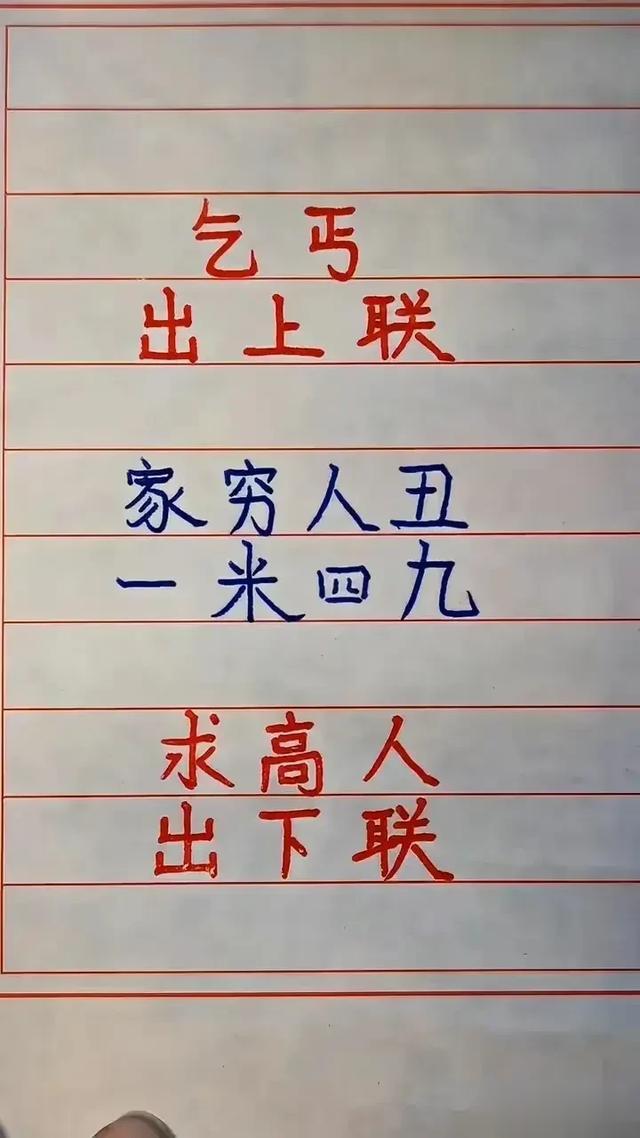 乞丐
出上联
家穷人丑
一米四九
求高人
出下联